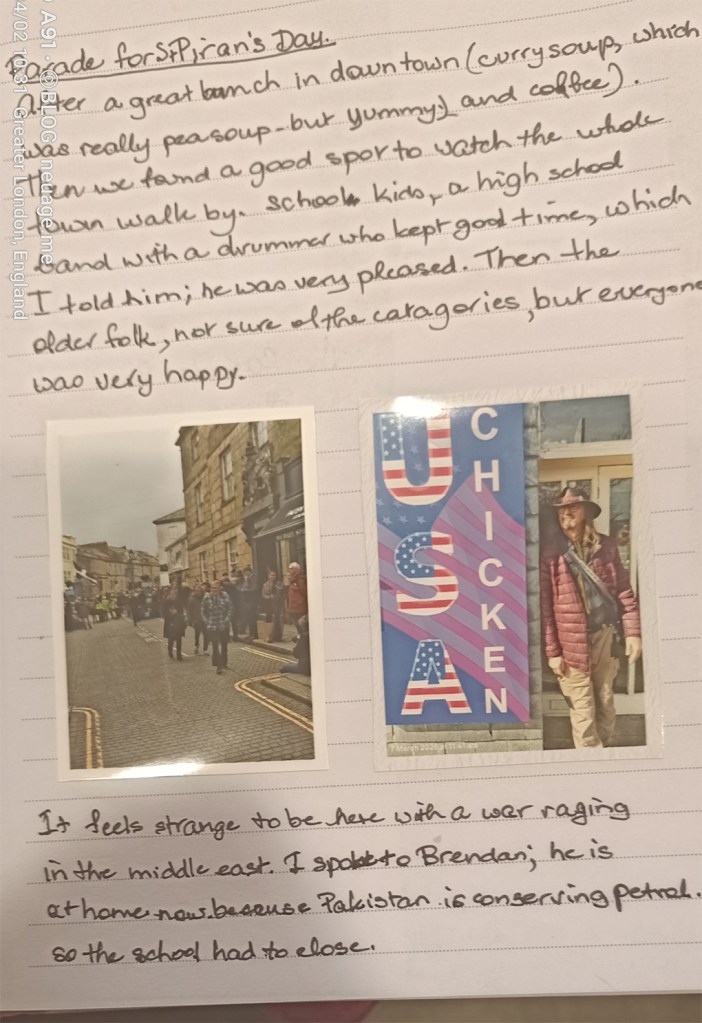 Parade for St Piran's Day.
After a great lunch in downtown (curry soup, which
was really pea soup - but yummy;) and coffee).
Then we found a good spot to watch the whole
town walk by. School kids, a high school
band with a drummer who kept good time, which
I told him; he was very pleased. Then the
older folk, not sure of the catagories, but everyone
was very happy.
USA
CHICKEN
7 March 2026
It feels strange to be here with a war raging
in the middle east. I spoke to Brendan; he is
at home now because Pakistan is conserving petrol.
so the school had to close.
A91 · @BLOG
4/02 10:31 Greater London, England